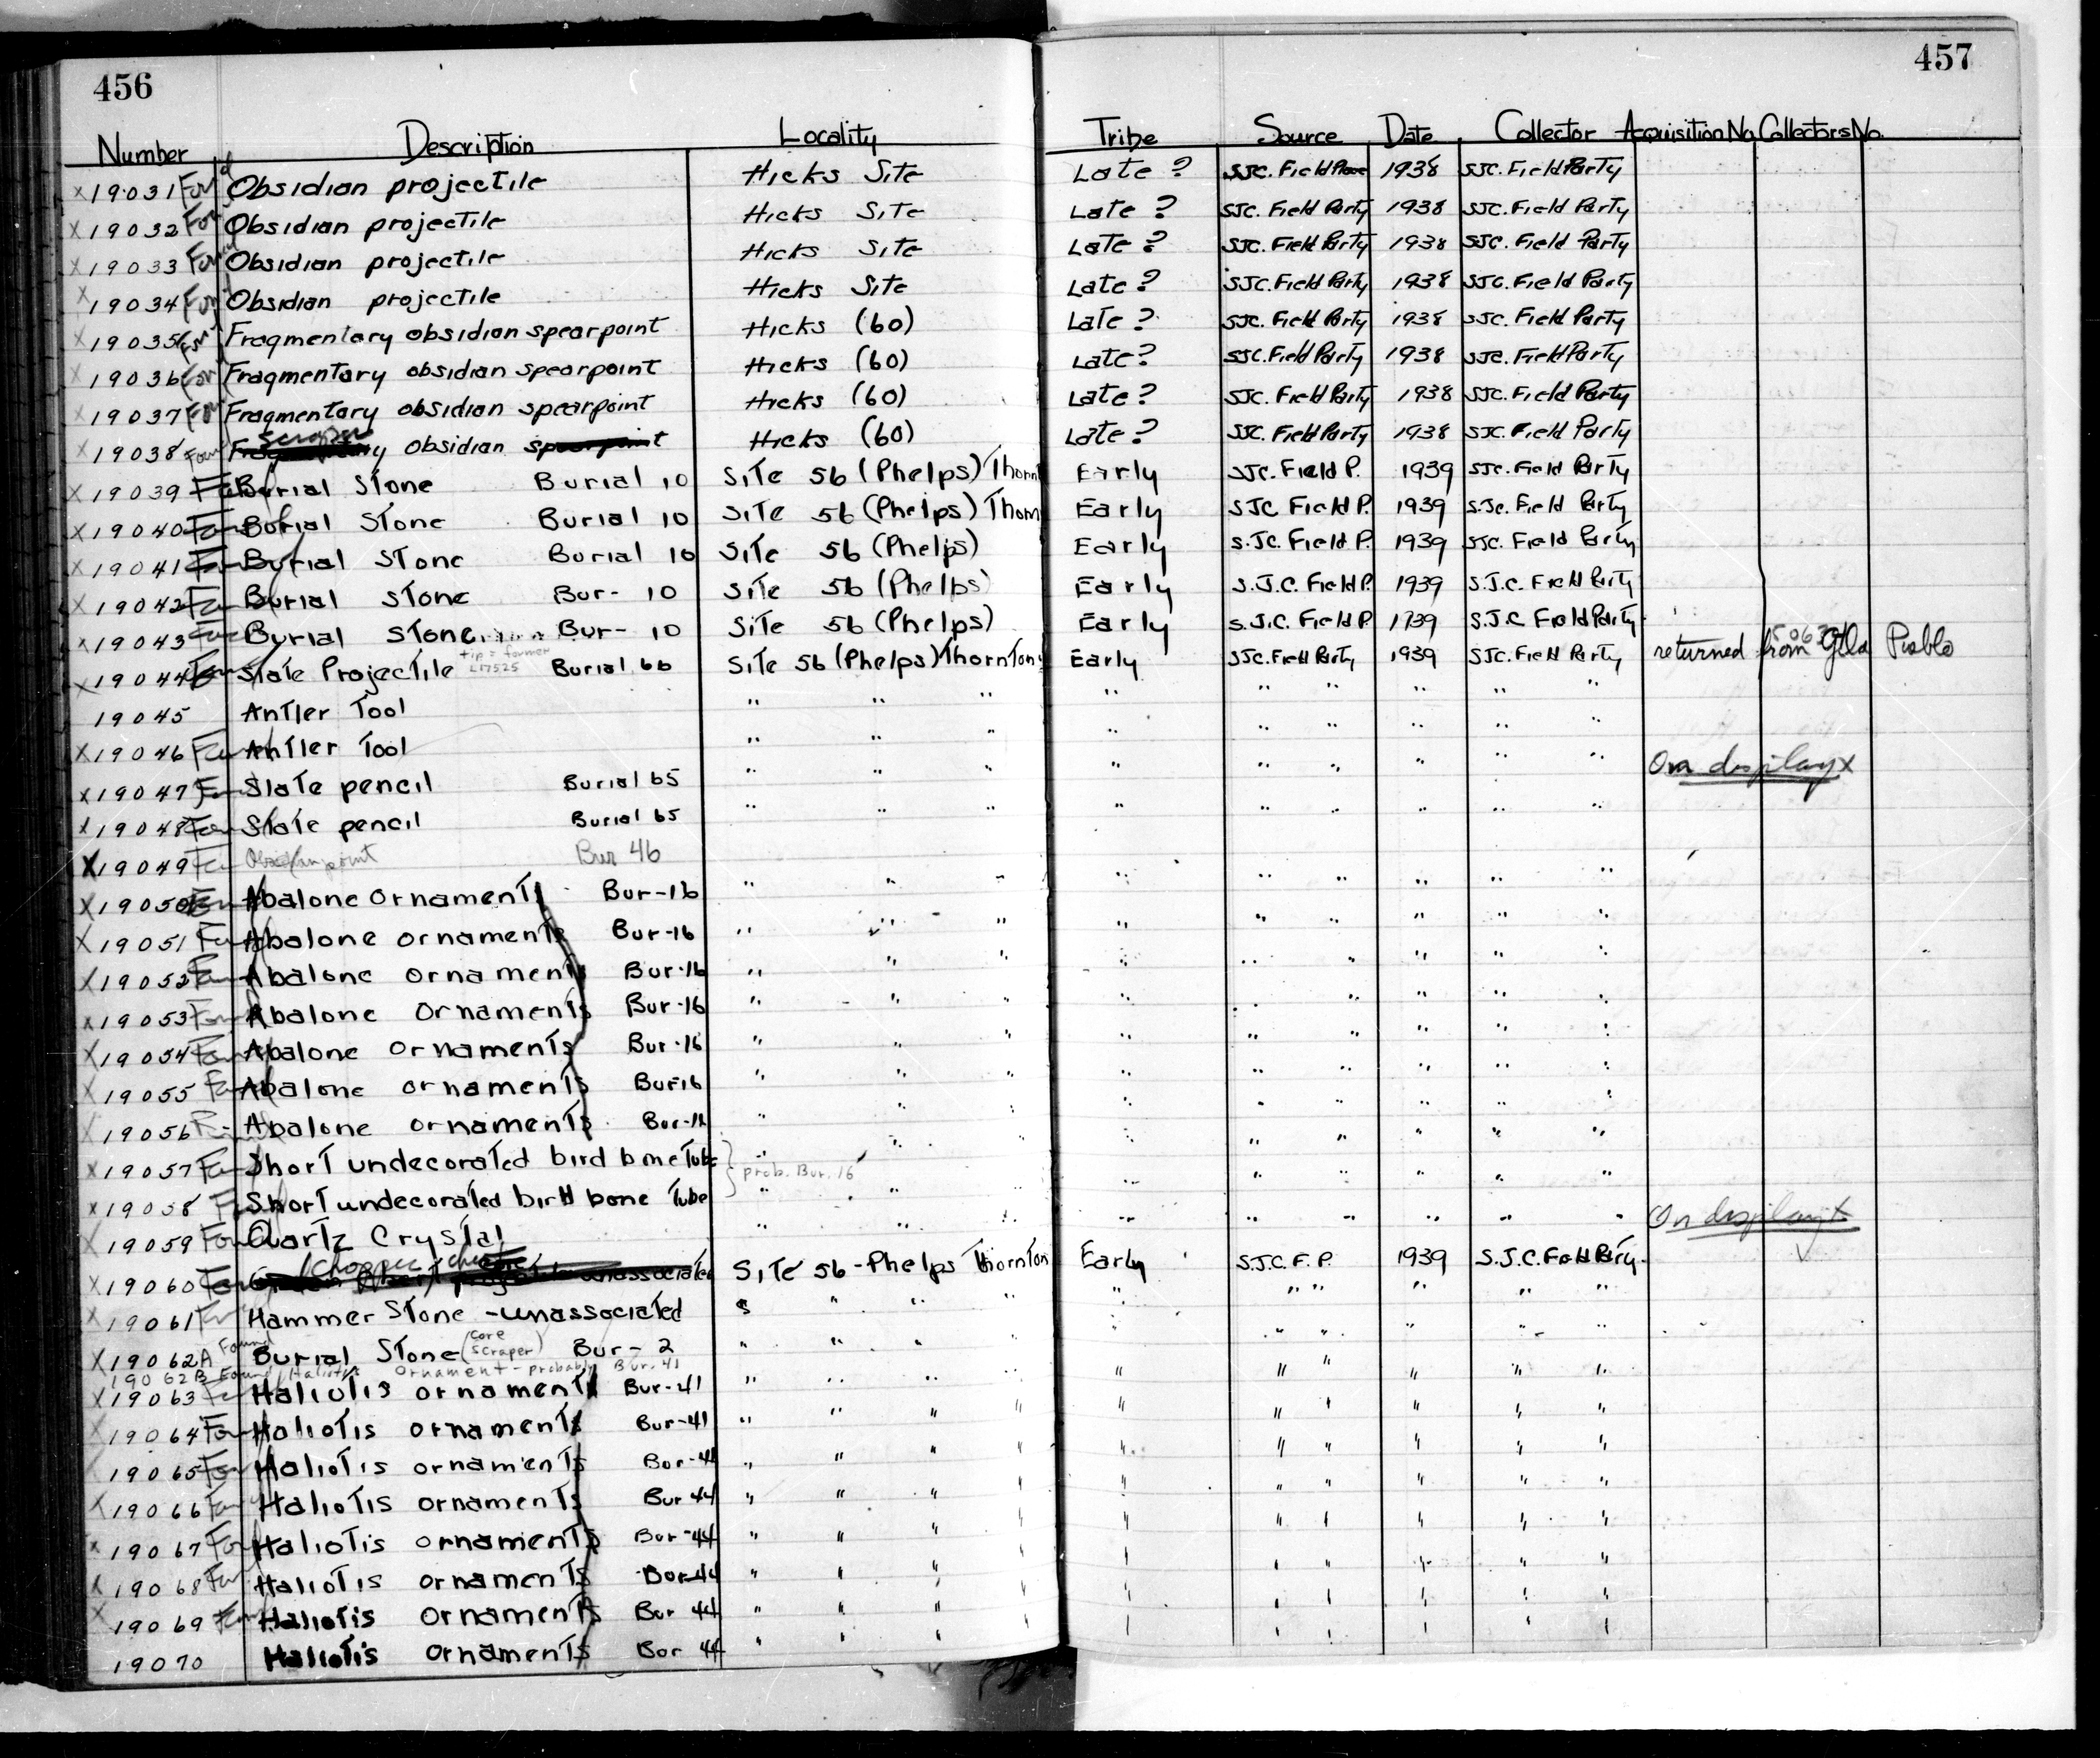 456
457
Number Description Locality Tribe Source Date Collector Acquisition No. Collectors No.
x 19031 Found Obsidian projectile Hicks Site Late ? SJC. Field 1938 SJC. Field Party
x 19032 Found Obsidian projectile Hicks Site Late ? SJC. Field Party 1938 SJC. Field Party
x 19033 Found Obsidian projectile Hicks Site Late ? SJC. Field Party 1938 SJC. Field Party
x 19034 Found Obsidian projectile Hicks Site Late ? SJC. Field Party 1938 SJC. Field Party
x 19035 Found Fragmentary obsidian spearpoint Hicks (60) Late ? SJC. Field Party 1938 SJC. Field Party
x 19036 Found Fragmentary obsidian spearpoint Hicks (60) Late ? SJC. Field Party 1938 SJC. Field Party
x 19037 Found Fragmentary obsidian spearpoint Hicks (60) Late ? SJC. Field Party 1938 SJC. Field Party
scraper
x 19038 Found Fragmentary obsidian spearpoint Hicks (60) Late ? SJC. Field Party 1938 SJC. Field Party
x 19039 Found Burial Stone Burial 10 Site 56 (Phelps) Thornt Early SJC. Field P. 1939 SJC. Field Party
x 19040 Found Burial Stone Burial 10 Site 56 (Phelps) Thorn Early SJC Field P. 1939 S.Jc. Field Party
x 19041 Found Burial Stone Burial 10 Site 56 (Phelps) Early S.JC. Field P. 1939 SJC. Field Party
x 19042 Found Burial Stone Bur- 10 Site 56 (Phelps) Early S.J.C. Field P. 1939 S.J.C. Field Party
x 19043 Found Burial Stone Bur- 10 Site 56 (Phelps) Early S.J.C. Field P 1939 S.J.C Field Party
x 19044 Found Slate Projectile tip = former L17525 Burial 66 Site 56 (Phelps) Thornton Early SJC. Field Party 1939 SJC. Field Party returned from Pueblo
19045 Antler Tool " " " " " " " " "
x 19046 Found Antler Tool " " " " " " " " "
x 19047 Found Slate pencil Burial 65 " " " " " " " " " On display x
x 19048 Found Slate pencil Burial 65 " " " " " " " " "
x 19049 Found Obsidian point Bur 46
x 19050 Found Abalone Ornaments Bur-16 " " " " " " " " "
x 19051 Found Abalone ornaments Bur-16 " " " " " " " " "
x 19052 Found Abalone ornaments Bur-16 " " " " " " " " "
x 19053 Found Abalone Ornaments Bur-16 " " " " " " " " "
x 19054 Found Abalone Ornaments Bur-16 " " " " " " " " "
x 19055 Found Abalone ornaments Bur 16 " " " " " " " " "
x 19056 Abalone ornaments Bur-16 " " " " " " " " "
x 19057 Found Short undecorated bird bone Tube " " " " " " " " "
prob. Bur. 16
x 19058 Found Short undecorated bird bone Tube " " " " " " " " "
x 19059 Found Quartz Crystal " " " " " " " " " On display x
chopper
x 19060 Found unassociated Site 56 - Phelps Thornton Early S.J.C. F. P. 1939 S.J.C. Field Party.
x 19061 Found Hammer Stone - unassociated " " " " " " " " "
x 19062A Found Burial Stone (core scraper) Bur- 2 " " " " " " " " "
19062B Found Haliotis Ornament - probably Bur. 41
x 19063 Found Haliotis ornaments Bur-41 " " " " " " " " "
x 19064 Found Haliotis ornaments Bur-41 " " " " " " " " "
19065 Found Haliotis ornaments Bur-44 " " " " " " " " "
x 19066 Found Haliotis ornaments Bur 44 " " " " " " " " "
x 19067 Found Haliotis ornaments Bur-44 " " " " " " " " "
x 19068 Found Haliotis ornaments Bur-44 " " " " " " " " "
x 19069 Found Haliotis Ornaments Bur 44 " " " " " " " " "
19070 Haliotis ornaments Bur 44 " " " " " " " " "